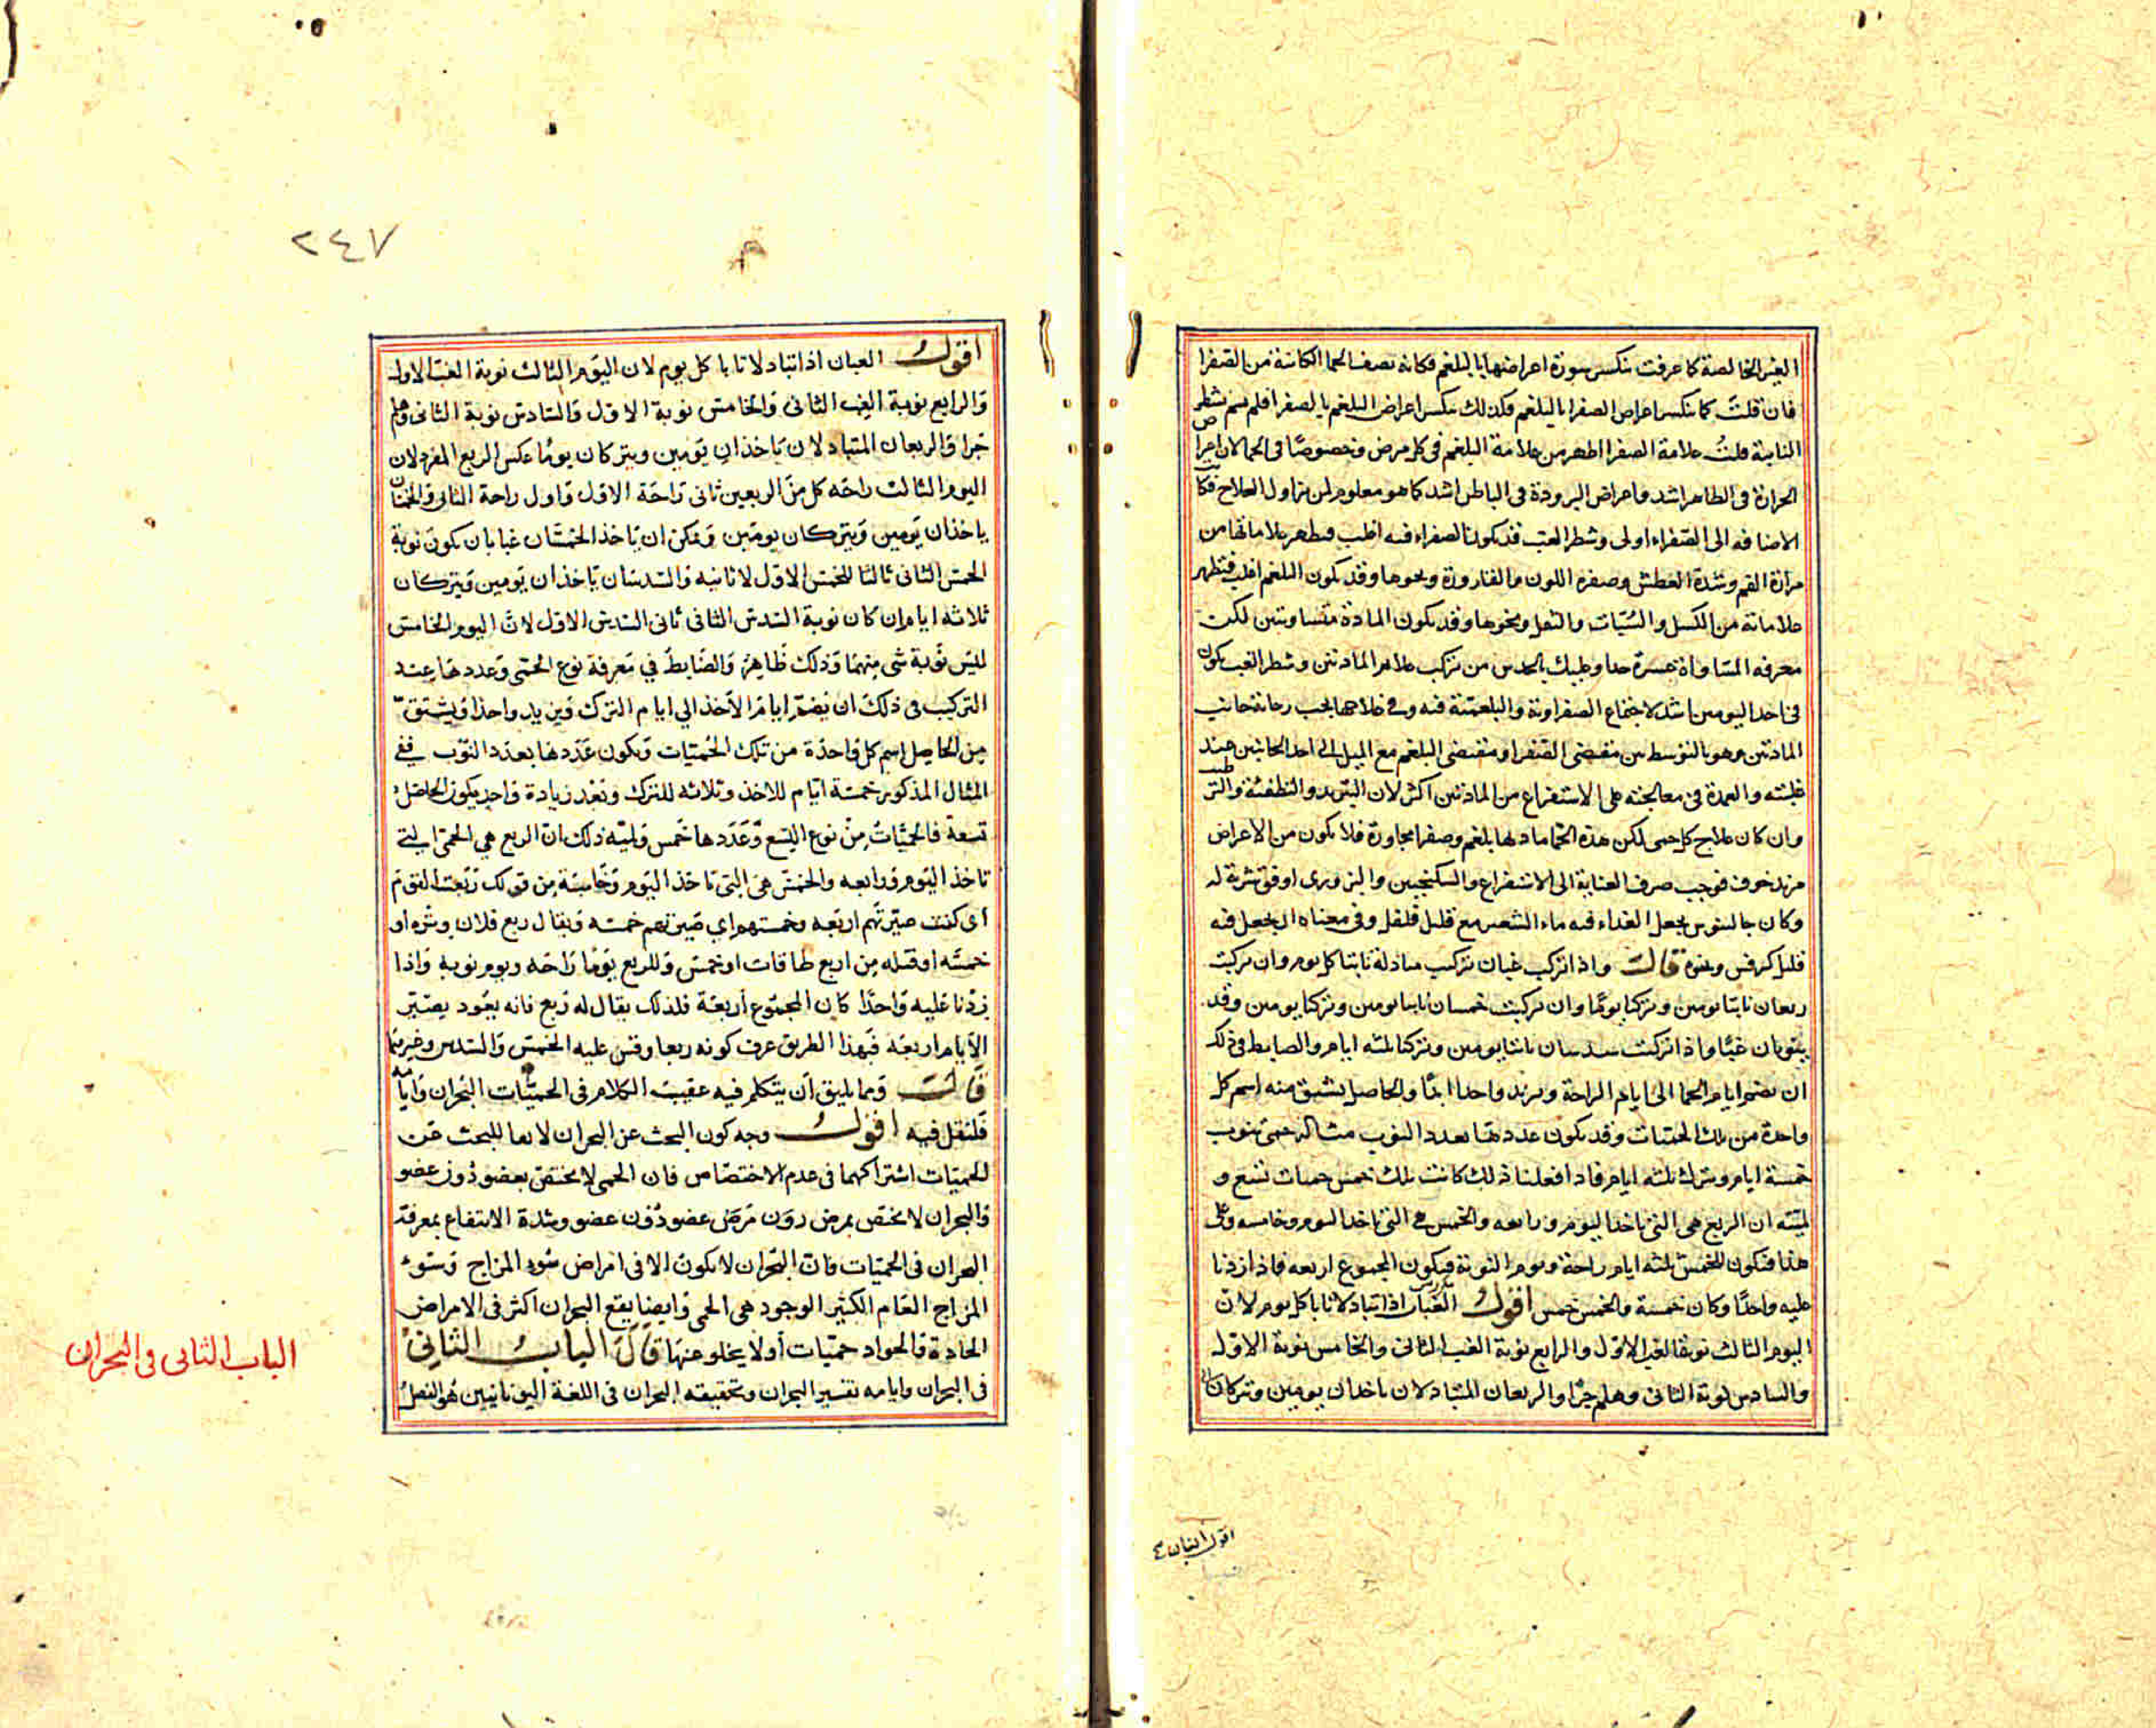 الغب الخالصة كما عرفت ينكسر سورة اعراضها بالبلغم فكانه نصف الحما الكائنة من الصفرا
فان قلت كما ينكسر اعراض الصفرا بالبلغم فكذلك ينكسر اعراض البلغم بالصفرا فلم لم يسم بشطر
النايبة قلت علامة الصفرا اظهر من علامة البلغم فى كل مرض وخصوصًا فى الحما لان اعرا
الحرارة فى الظاهر اشد واعراض البرودة فى الباطن اشد كما هو معلوم لمن زاول العلاج فكا
الاضافه الى الصفراء اولى وشطر الغب قد يكون الصفراء فيه اغلب فيظهر علاماتها من
مرارة الفم وشدة العطش وصفرة اللون والقارورة ونحوها وقد يكون البلغم اغلب فتظهر
علاماته من الكسل والسبات والثقل ونحوها وقد يكون المادة متساويتين لكن
معرفه المساواة عسرة جدا وعليك بالحدس من تركب علايم المادتين وشطر الغب يكون
فى احد اليومين اشد لاجتماع الصفراوية والبلغمية فيه وفى علاجها يجب رعاية جانب
المادتين وهو بالتوسط بين مقتضى الصفرا ومقتضى البلغم مع الميل الى احد الجانبين عند
غلبته والعمدة فى معالجته على الاستفراغ من المادتين اكثر لان التبريد والتطفئة والتر
وان كان علاج كل حمى لكن هذه الحما مادتها بلغم وصفرا مجاورة فلا يكون من الاعراض
مزيد خوف فوجب صرف العناية الى الاستفراغ والسكنجبين والبزورى اوفق شربة له
وكان جالينوس يجعل الغذاء فيه ماء الشعير مع قليل فلفل وفى معناه ان يجعل فيه
قليل كرفس ونحوه قال واذا تركب غبان تركيب مبادلة نابتا كل يوم وان تركبت
ربعان نابتا يومين وتركتا يومًا وان تركبت خمسان نابتا يومين وتركتا يومين وقد
ينوبان غبًا واذا تركبت سدسان نابتا يومين وتركتا ثلثه ايام والضابط فى ذلك
ان تضم ايام الحما الى ايام الراحة وتزيد واحدا ابدًا والحاصل يشتق منه اسم كل
واحدة من تلك الحميات وقد يكون عددها بعدد النوب مثاله حمى تنوب
خمسة ايام وتترك ثلثه ايام فاذا فعلنا ذلك كانت تلك خمس حميات تسع و
لميته ان الربع هى التى تاخذ اليوم ورابعه والخمس هى التى تاخذ اليوم وخامسه وعلى
هذا فيكون للخمس ثلثه ايام راحة ويوم النوبة فيكون المجموع اربعه فاذا زدنا
عليه واحدًا وكان خمسة والخمس خمس اقول الغبان اذا تبادلا نابا كل يوم لان
اليوم الثالث نوبة الغب الاول والرابع نوبة الغب الثانى والخامس نوبة الاول
والسادس نوبة الثانى وهلم جرًا والربعان المتبادلان ياخذان يومين ويتركان
اقول الغبان
٢٤٧
اقول الغبان اذا تبادلا نابا كل يوم لان اليوم الثالث نوبة الغب الاول
والرابع نوبة الغب الثانى والخامس نوبة الاول والسادس نوبة الثانى وهلم
جرا والربعان المتبادلان ياخذان يومين ويتركان يومًا عكس الربع المفرد لان
اليوم الثالث راحه كل من الربعين ثانى راحة الاول واول راحة الثانى والخمسان
ياخذان يومين ويتركان يومين ويمكن ان ياخذ الخمسان غبا بان يكون نوبة
الخمس الثانى ثالثا للخمس الاول لا ثانيه والسدسان ياخذان يومين ويتركان
ثلاثه ايام ان كان نوبة السدس الثانى ثانى السدس الاول لان اليوم الخامس
ليس نوبة شى منهما وذلك ظاهر والضابط في معرفة نوع الحمى وعددها عند
التركيب فى ذلك ان يضم ايام الاخذ الي ايام الترك ويزيد واحدا ويشتق
من الحاصل اسم كل واحدة من تلك الحميات ويكون عددها بعدد النوب ففي
المثال المذكور خمسة ايام للاخذ وثلاثه للترك وبعد زيادة واحد يكون الحاصل
تسعة فالحميات من نوع التسع وعددها خمس ولميته ذلك ان الربع هي الحمى التى
تاخذ اليوم ورابعه والخمس هى التى تاخذ اليوم وخامسه من قولك ربعت القوم
أى كنت صيرتهم اربعه وخمستهم اي صيرتهم خمسه ويقال ربع فلان وتره او
خمسه أو فتله من اربع طاقات او خمس وللربع يومًا راحه ويوم نوبة واذا
زدنا عليه واحدًا كان المجموع أربعة فلذلك يقال له ربع فانه يعود يصير
الايام اربعه فبهذا الطريق عرف كونه ربعا وقس عليه الخمس والسدس وغيرهما
قال ومما يليق أن يتكلم فيه عقيب الكلام فى الحميات البحران وايامه
فلنقل فيه اقول وجه كون البحث عن البحران لائقا للبحث عن
الحميات اشتراكهما فى عدم الاختصاص فان الحمى لا يختص بعضو دون عضو
والبحران لا يختص بمرض دون مرض عضو دون عضو وشدة الانتفاع بمعرفة
البحران فى الحميات فان البحران لا يكون الا فى امراض سوء المزاج وسوء
المزاج العام الكثير الوجود هى الحمى وايضا يقع البحران اكثر فى الامراض
الحادة والحواد حميات أو لا يخلو عنها قال الباب الثانى
فى البحران وايامه تفسير البحران وتحقيقه البحران فى اللغة اليونانيين هو الفصل
الباب الثانى فى البحران